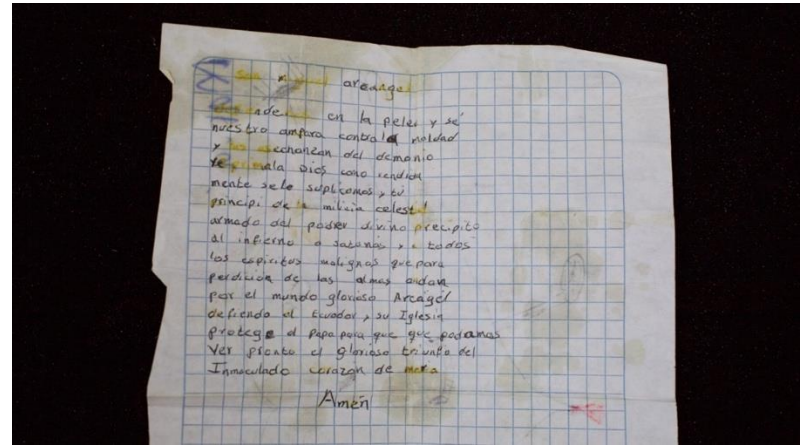 San arcangel
en la pelea y sé
nuestro ampara contra la maldad
y las acechanzan del demonio
Dios como rendida
mente se le suplicamos, tú
principi de la milicia celestial
armado del poder divino precipita
al infierno a satanas, a todos
los espiritos malignas que para
perdición de las almas andan
por el mundo glorioso Arcagel
defiendo al Ecuador, su Iglesia
protege al Papa para que que podamos
Ver pronto el glorioso triunfo del
Inmaculado corazón de
Amén